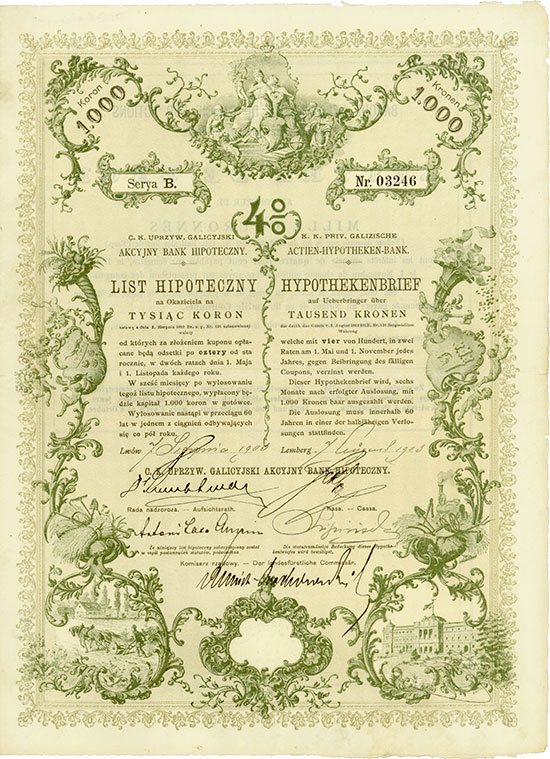 Koron 1.000
Kronen 1.000
Serya B.
Nr. 03246
4%
C. K. UPRZYW. GALICYJSKI
AKCYJNY BANK HIPOTECZNY.
LIST HIPOTECZNY
na Okaziciela na
TYSIĄC KORON
walory
od których za złożeniem kuponu opła-
cane będą odsetki po cztery od sta
rocznie, w dwóch ratach dnia 1. Maja
i 1. Listopada każdego roku.
W sześć miesięcy po wylosowaniu
tegoż listu hipotecznego, wypłacony bę-
dzie kapitał 1.000 koron w gotówce.
Wylosowanie nastąpi w przeciągu 60
lat w jednem z ciągnień odbywających
się co pół roku.
Lwów
K. K. PRIV. GALIZISCHE
ACTIEN-HYPOTHEKEN-BANK.
HYPOTHEKENBRIEF
auf Ueberbringer über
TAUSEND KRONEN
Währung
welche mit vier von Hundert, in zwei
Raten am 1. Mai und 1. November jedes
Jahres, gegen Beibringung des fälligen
Coupons, verzinst werden.
Dieser Hypothekenbrief wird, sechs
Monate nach erfolgter Auslosung, mit
1.000 Kronen baar ausgezahlt werden.
Die Auslosung muss innerhalb 60
Jahren in einer der halbjährigen Verlo-
sungen stattfinden.
Lemberg
C. K. UPRZYW. GALICYJSKI AKCYJNY BANK HIPOTECZNY.
Rada nadzorcza. — Aufsichtsrath.
Kasa. — Cassa.
Że niniejszy list hipoteczny
Die statutenmässige Bedeckung dieses Hypothe-
kenbriefes wird bestätigt.
Komisarz rządowy. — Der landesfürstliche Commissär.